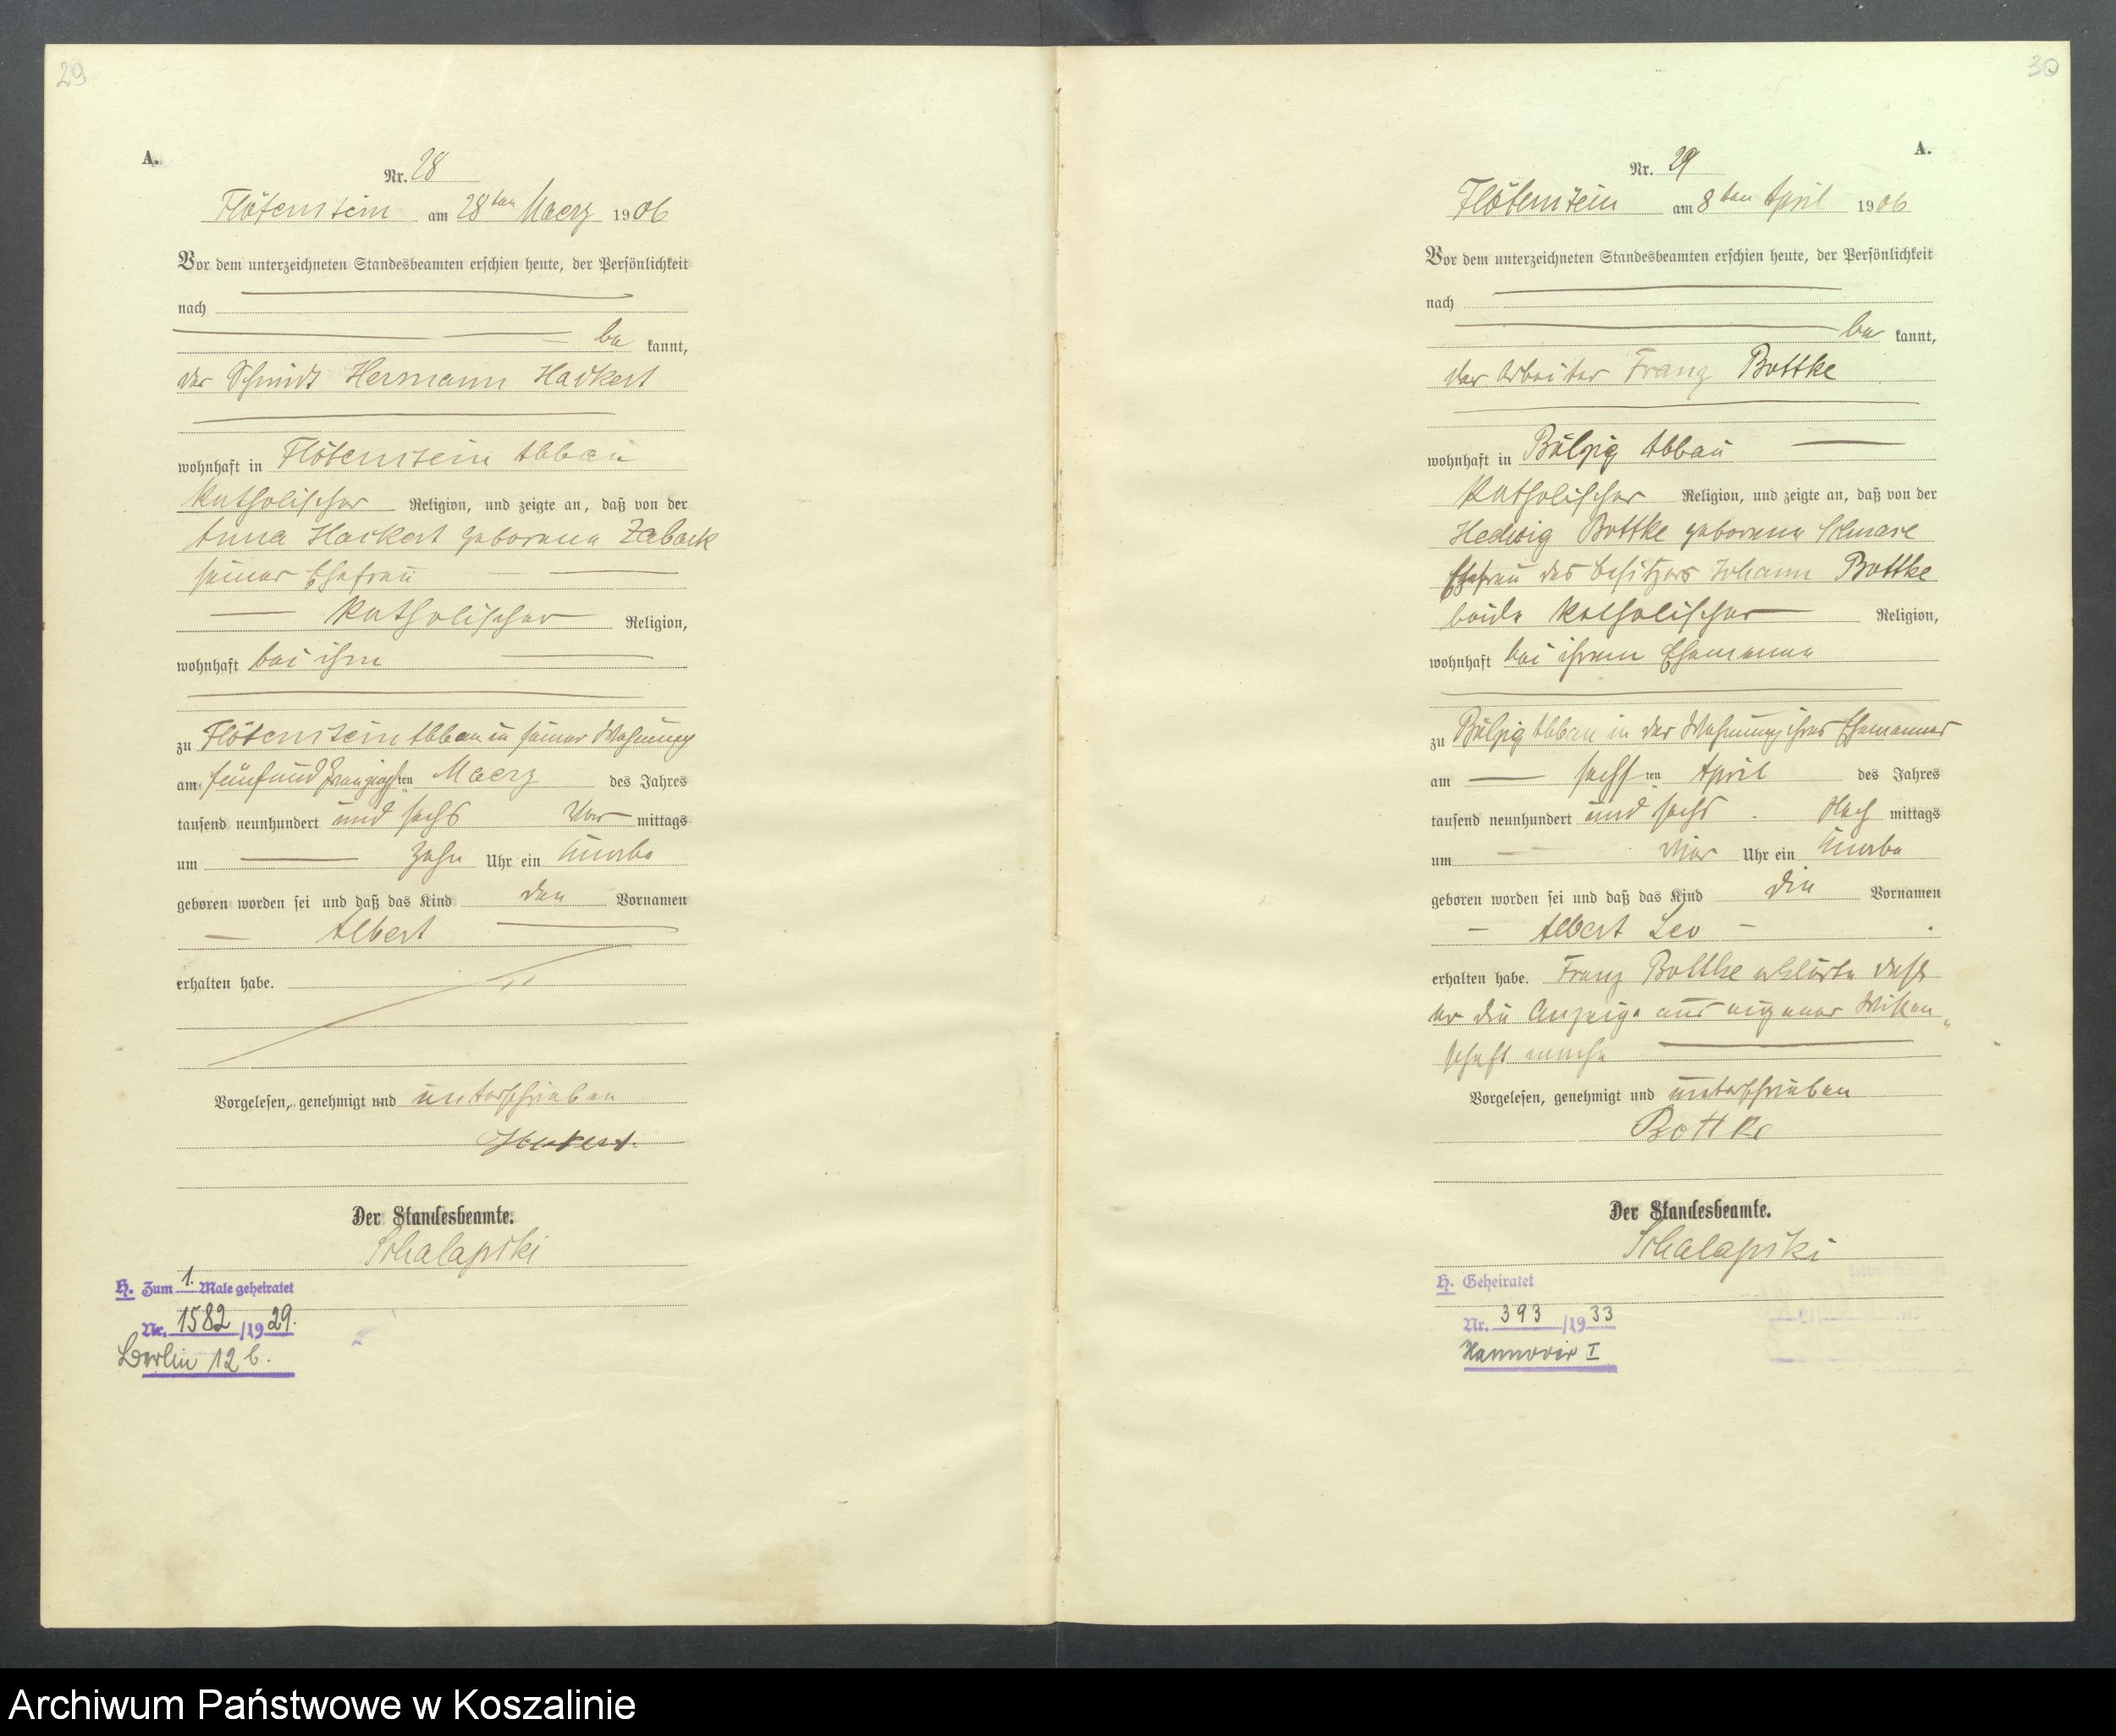 29
A.
Nr. 28
Flötenstein am 28ten Maerz 1906
Vor dem unterzeichneten Standesbeamten erschien heute, der Persönlichkeit
nach
be kannt,
der Schmidt Hermann Hackert
wohnhaft in Flötenstein Abbau
katholischer Religion, und zeigte an, daß von der
Anna Hackert geborenen Zaback
seiner Ehefrau
katholischer Religion,
wohnhaft bei ihm
zu Flötenstein Abbau in seiner Wohnung
am fünfundzwanzigsten Maerz des Jahres
tausend neunhundert und sechs Vor mittags
um zehn Uhr ein Knabe
geboren worden sei und daß das Kind den Vornamen
Albert
erhalten habe.
Vorgelesen, genehmigt und unterschrieben
Hackert.
Der Standesbeamte.
Schalapski
H. Zum 1. Male geheiratet
Nr. 1582/1929.
Berlin 12 b.
30
A.
Nr. 29
Flötenstein am 8ten April 1906
Vor dem unterzeichneten Standesbeamten erschien heute, der Persönlichkeit
nach
be kannt,
der Arbeiter Franz Bottke
wohnhaft in Bölzig Abbau
katholischer Religion, und zeigte an, daß von der
Hedwig Bottke geborenen
Ehefrau des Besitzers Johann Bottke
beide katholischer Religion,
wohnhaft bei ihrem Ehemanne
zu Bölzig Abbau in der Wohnung ihres Ehemannes
am sechsten April des Jahres
tausend neunhundert und sechs Nach mittags
um vier Uhr ein Knabe
geboren worden sei und daß das Kind die Vornamen
Albert Leo
erhalten habe. Franz Bottke erklärte daß
er die Anzeige aus eigener Wissen„
schaft mache
Vorgelesen, genehmigt und unterschrieben
Bottke
Der Standesbeamte.
Schalapski
H. Geheiratet
Nr. 393/1933
Hannover I
Archiwum Państwowe w Koszalinie